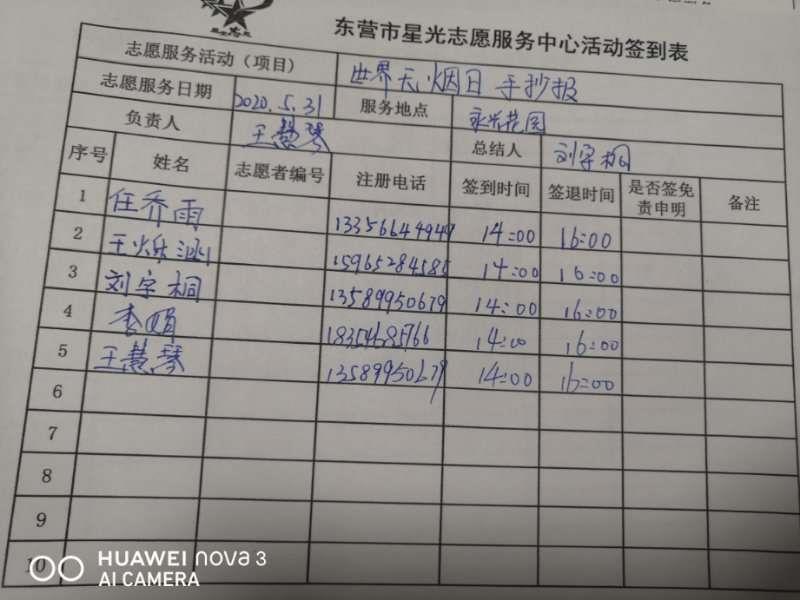 东营市星光志愿服务中心活动签到表
志愿服务活动（项目） 世界无烟日 手抄报
志愿服务日期 2020.5.31 服务地点 永兴花园
负责人 王慧琴 总结人 刘宇桐
序号 姓名 志愿者编号 注册电话 签到时间 签退时间 是否签免责申明 备注
1 任乔雨 13356644949 14:00 16:00
2 王烁涵 15965284585 14:00 16:00
3 刘宇桐 13589950679 14:00 16:00
4 李娟 18354685766 14:00 16:00
5 王慧琴 13589950679 14:00 16:00
6
7
8
9
10
HUAWEI nova 3
AI CAMERA